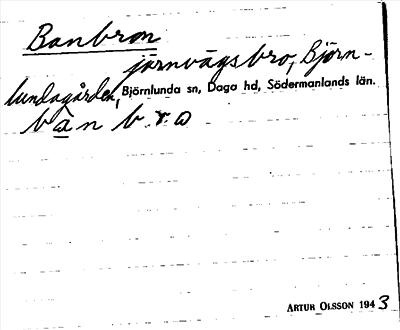 Banbron
järnvägsbro, Björn-
lundagården, Björnlunda sn, Daga hd, Södermanlands län.
bàn b.ro
ARTUR OLSSON 1943